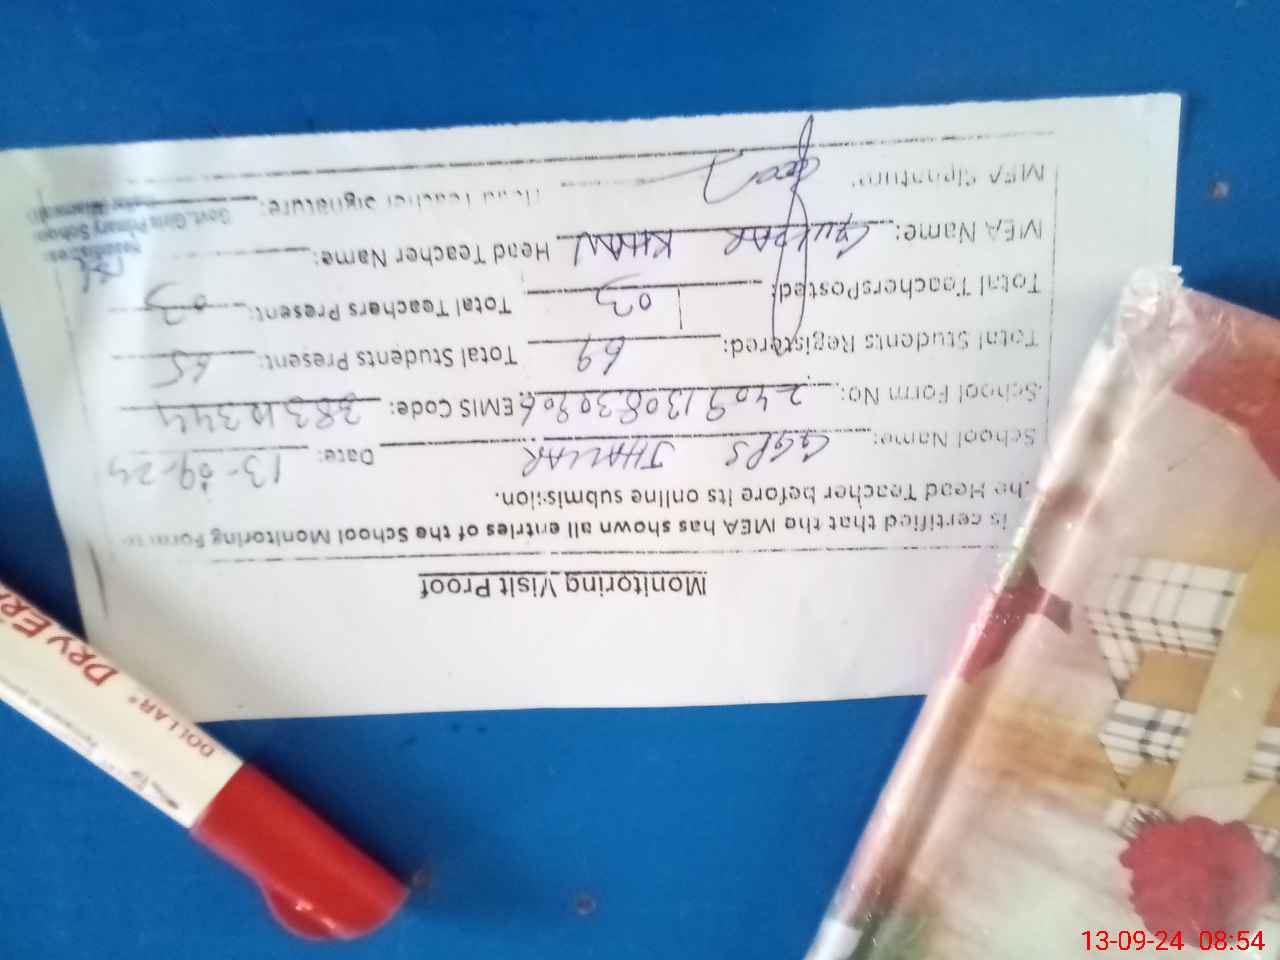 Monitoring Visit Proof
is certified that the MEA has shown all entries of the School Monitoring Form to
the Head Teacher before its online submission.
School Name: GGPS JHALLAR Date: 13-09-24
School Form No: 2409130830906 EMIS Code:
Total Students Registered: 69 Total Students Present: 65
Total TeachersPosted: 03 Total Teachers Present: 03
MEA Name: GULZAR KHAN Head Teacher Name:
MEA Signature: Head Teacher Signature:
Govt. Girls Primary School
DOLLAR DRY ERA
13-09-24 08:54